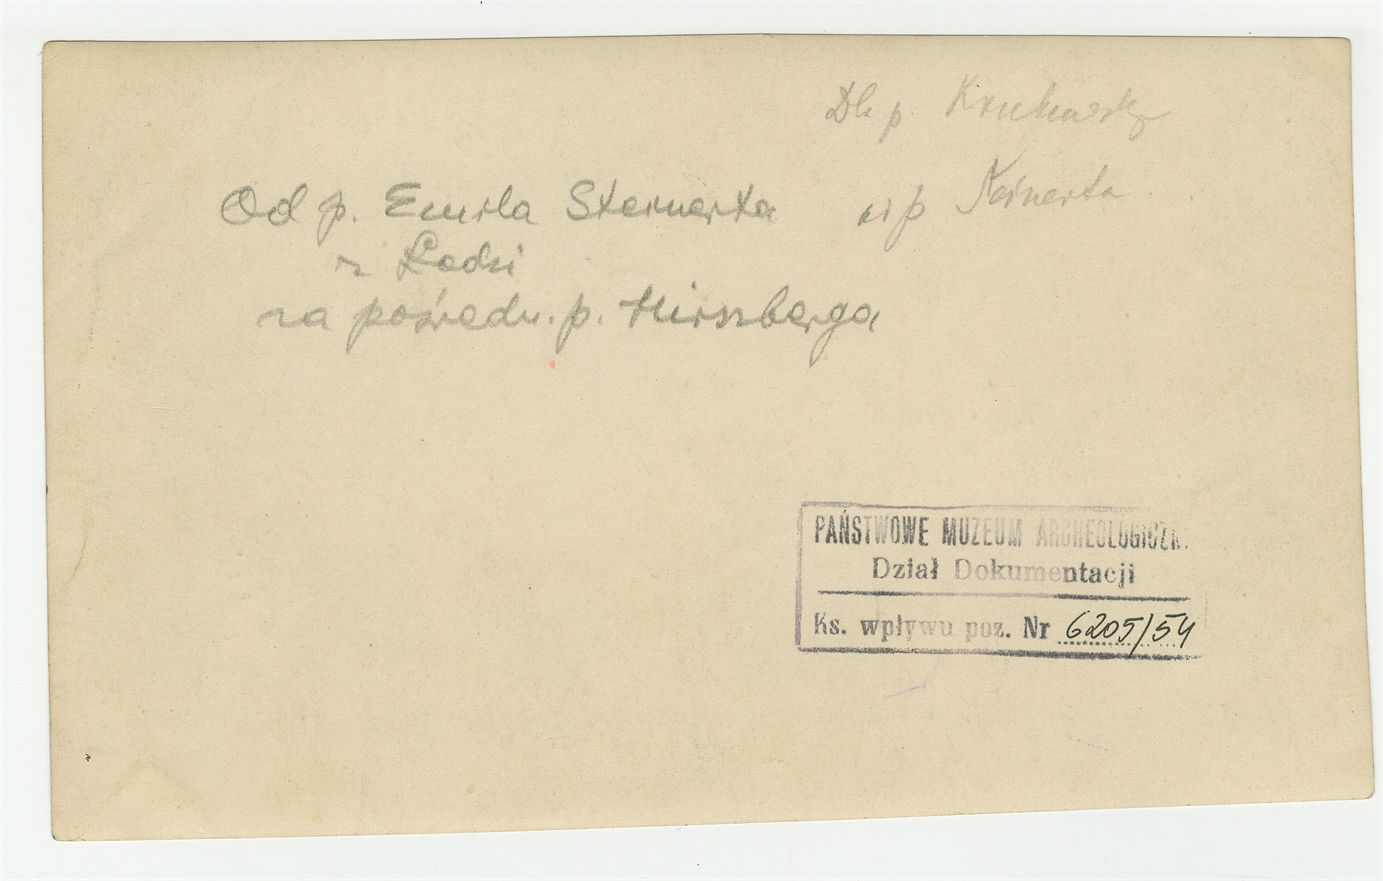 Dla p.
Od p. Emila Steinerta
z Łodzi
za pośredn. p. Hirszberga
PAŃSTWOWE MUZEUM ARCHEOLOGICZN.
Dział Dokumentacji
Ks. wpływu poz. Nr 6205/54